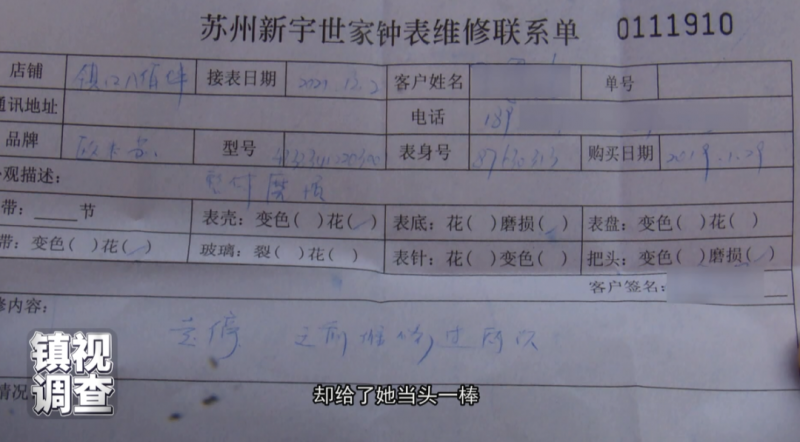 苏州新宇世家钟表维修联系单 0111910
店铺 镇江八佰伴 接表日期 2021.12.2 客户姓名 单号
通讯地址 电话 189
品牌 欧米茄 型号 表身号 87630313 购买日期 2019.1.29
观描述: 整体磨损
带: ____节 表壳: 变色( )花(✓) 表底: 花( )磨损(✓) 表盘: 变色( )花( )
带: 变色( )花(✓) 玻璃: 裂( )花( ) 表针: 花( )变色( ) 把头: 变色( )磨损(✓)
客户签名:
修内容:
走停 之前维修过
情况
镇视
调查
却给了她当头一棒